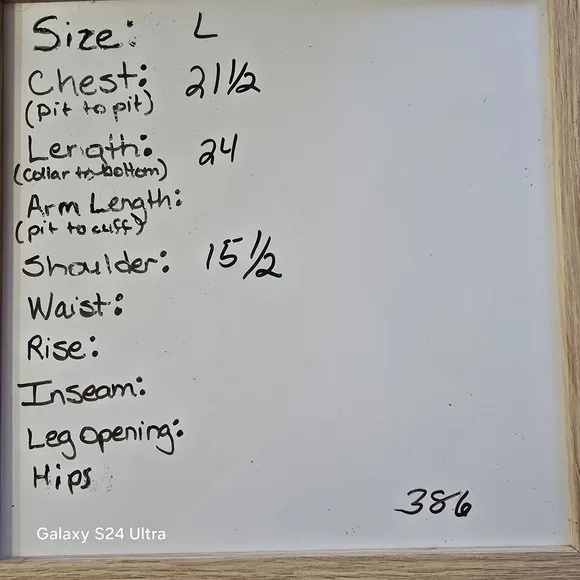 Size: L
Chest: 21 1/2
(pit to pit)
Length: 24
(collar to bottom)
Arm Length:
(pit to cuff)
Shoulder: 15 1/2
Waist:
Rise:
Inseam:
Leg Opening:
Hips
386
Galaxy S24 Ultra